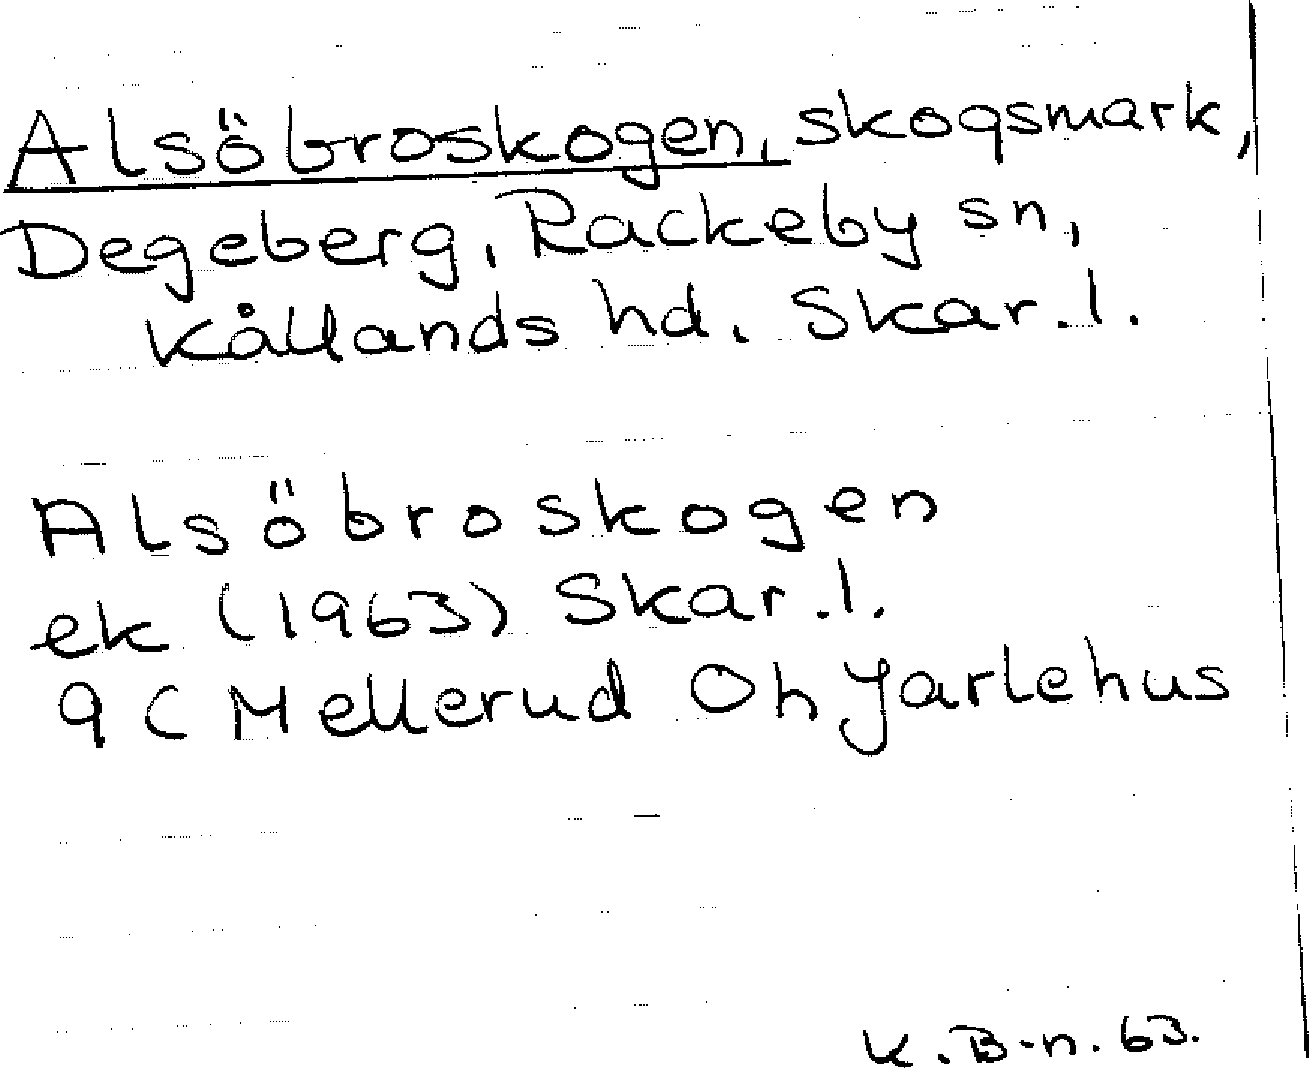 Alsöbroskogen, skogsmark,
Degeberg, Rackeby sn,
Kållands hd. Skar.l.
Alsöbroskogen
ek (1963) Skar.l.
9C Mellerud Oh Jarlehus
K.B-n. 63.